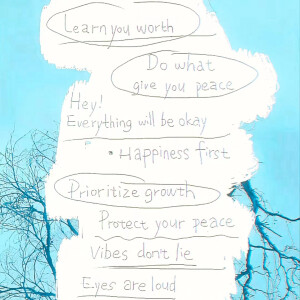 Learn you worth
Do what
give you peace
Hey!
Everything will be okay
• Happiness first
Prioritize growth
Protect your peace
Vibes dont lie
Eyes are loud